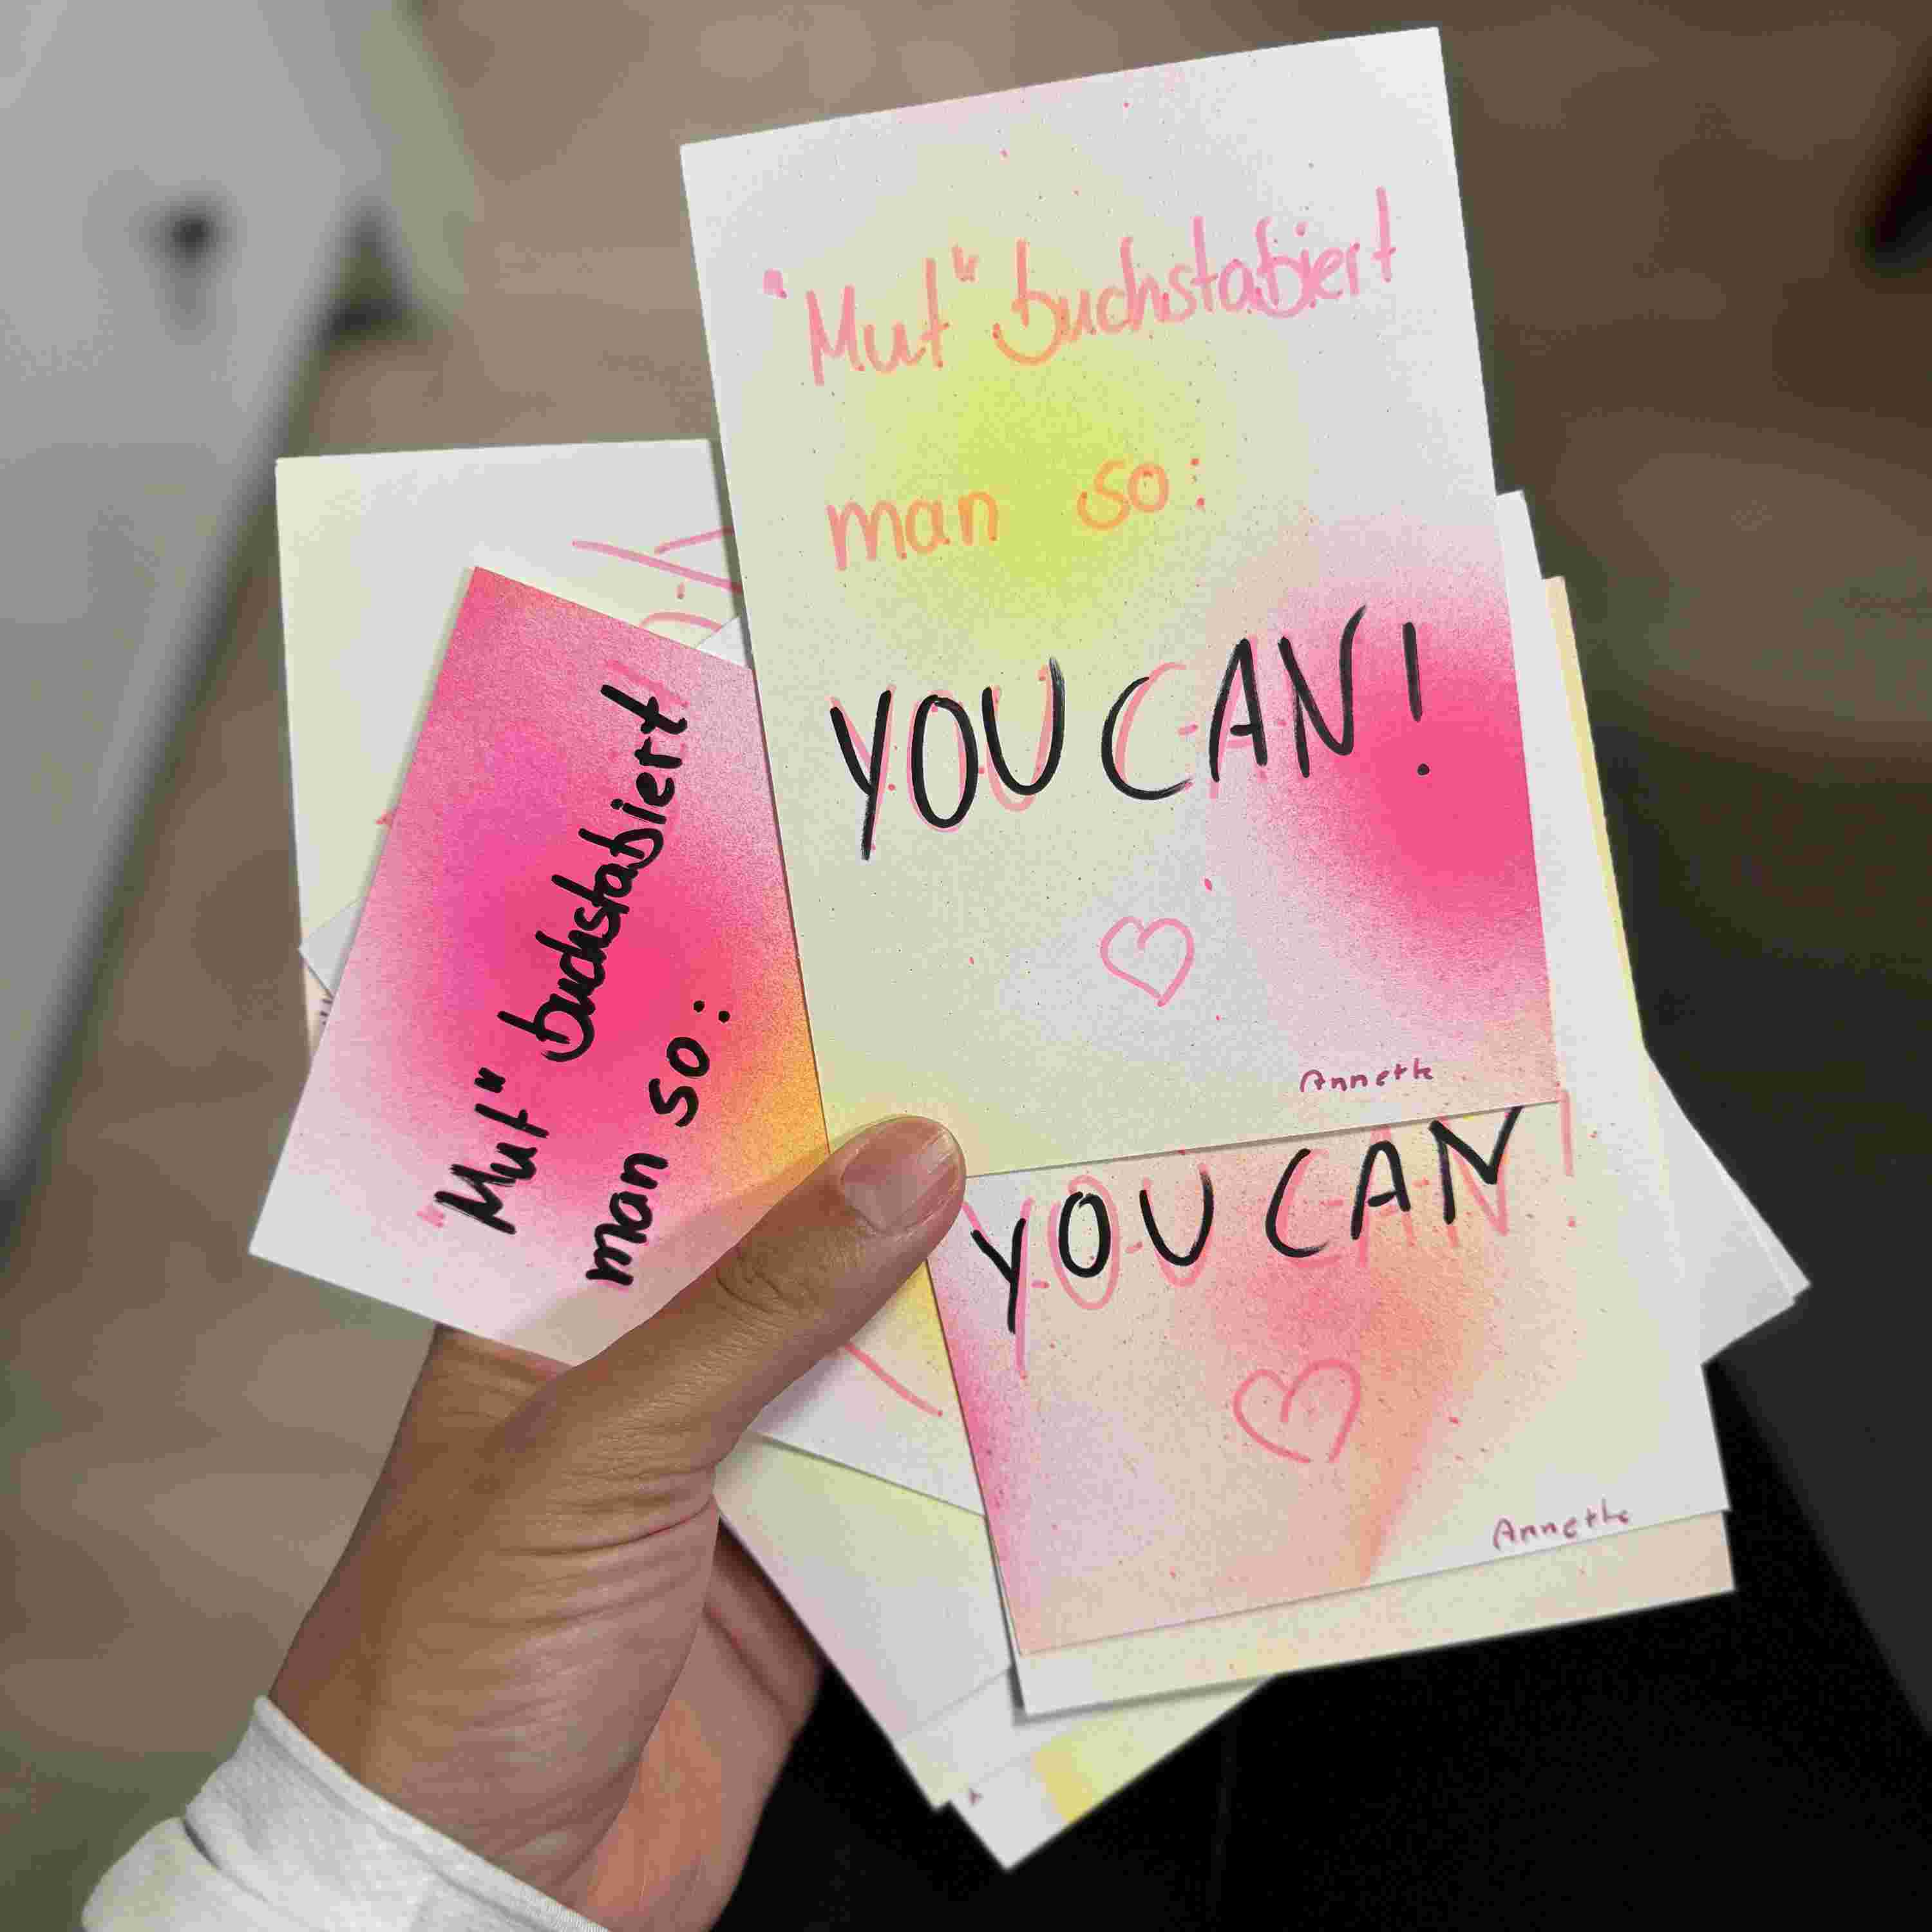 "Mut" buchstabiert
man so:
YOU CAN!
Annette
"Mut" buchstabiert
man so:
YOU CAN!
Annette